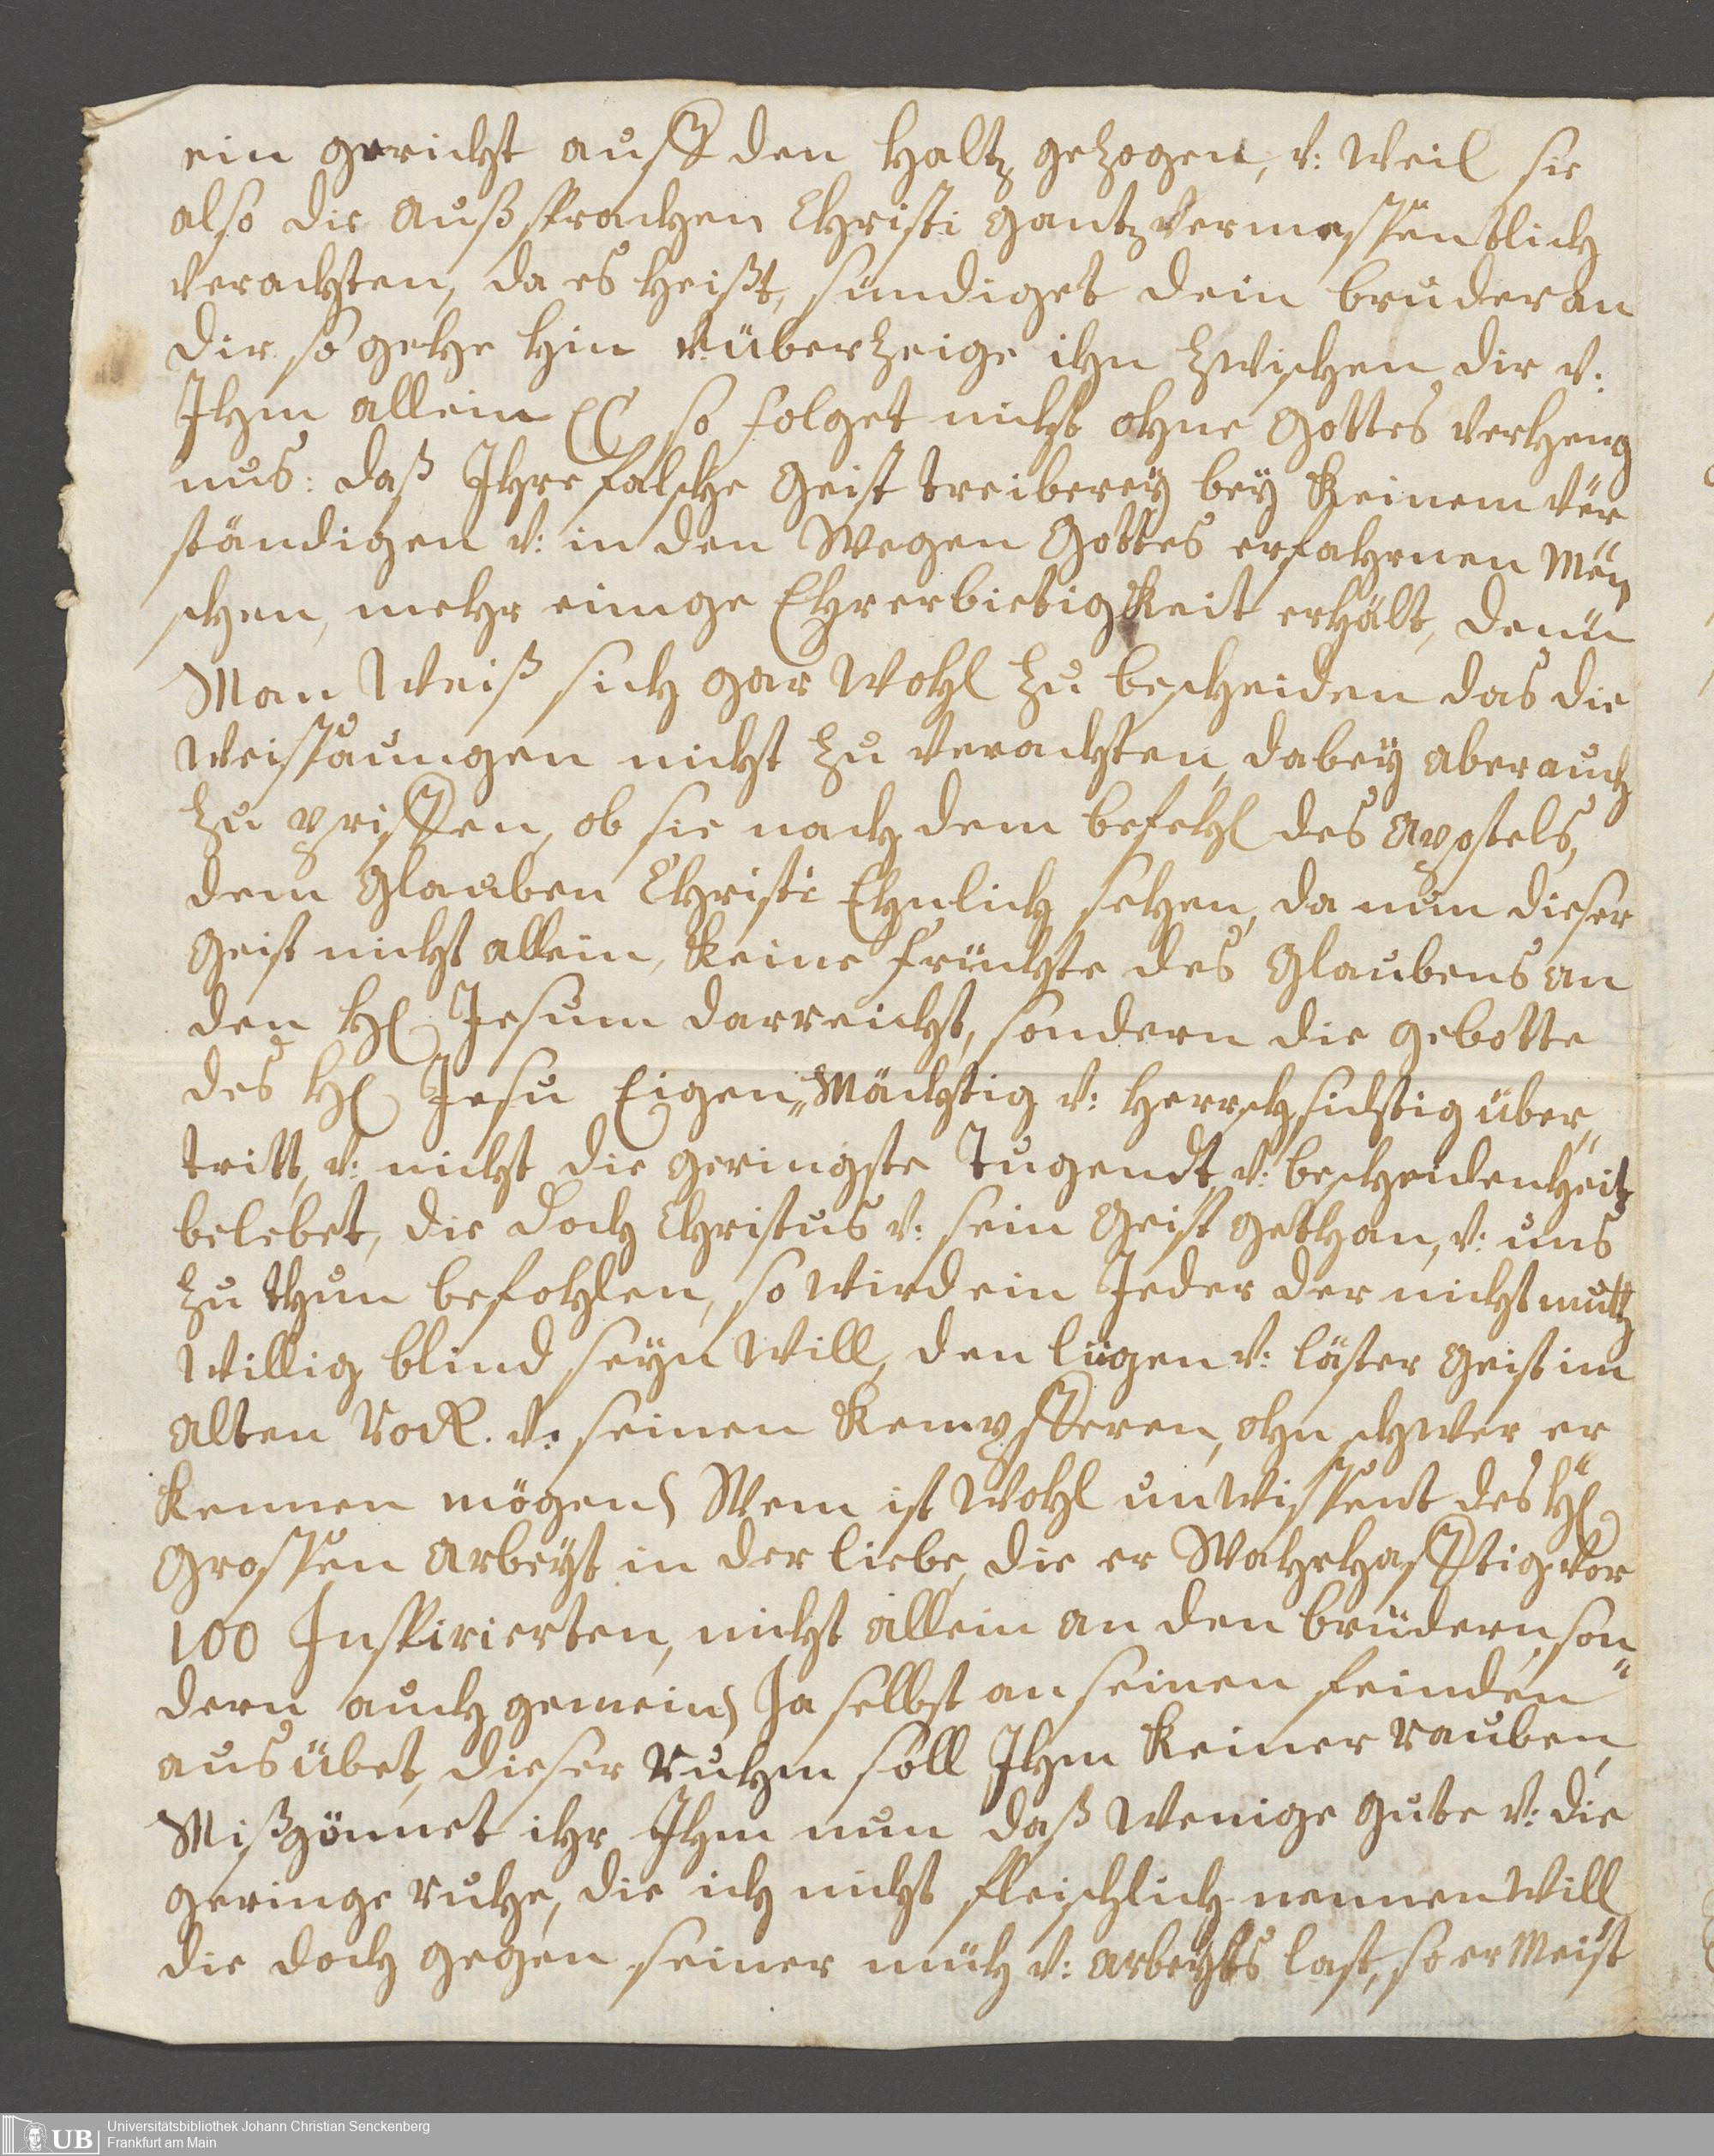 ein gericht auff den Haltz gezogen, v: Weil sie
also die Außsprachen Christi gantz vermessentlich
verachten, da es heißt, sündiget dein bruder an
dir so gehe hin v: überzeige ihn zwischen dir v:
Ihm allein so folget nicht ohne Gottes verheng
nus: daß Ihre falsche Geist treiberey bey Keinem ver
ständigen v: in den Wegen Gottes erfahrnen Men
schen, mehr einige Ehrerbietigkeit erhält, denn
Man Weiß sich gar Wohl zu bescheiden das die
Weissaungen nicht zu verachten, dabey aber auch
zu prüffen, ob sie nach dem befehl des Apostels,
dem Glauben Christi Ehnlich sehen, da nun dieser
Geist nicht allein, Keine früchte des Glaubens an
den H. Jesum darreicht, sondern die gebotte
des H. Jesu Eigen„Mächtig v: herrschsichtig über„
tritt, v: nicht die geringste Tugendt v: bescheidenheit
belebet, die doch Christus v: sein Geist gethan, v: uns
zu thun befohlen, so wird ein Jeder der nicht muth
Willig blind seyn Will, den lügen v: läster Geist im
alten Rock. v: seinen Kempfferen, ohnschwer er
Kennen mögen, Wem ist Wohl unwissent des H.
Grossen Arbeyt in der liebe, die er Wahrhafftig vor
100 Inspirierten, nicht allein an den brüdern, son„
dern auch gemein, Ja selbst an seinen feinden
ausübet, dieser Ruhm soll Ihm Keiner rauben,
Mißgönnet ihr Ihm nun daß Wenige gute v: die
geringe ruhe, die ich nicht fleischlich nennen Will
die doch gegen seiner müh v: arbeyts last, so er Meist
Universitätsbibliothek Johann Christian Senckenberg
Frankfurt am Main
UB